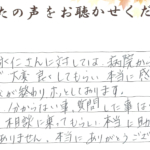 たの声をお聴かせくだ
永仁さんに対しては、病院か
大変良くしてもらい本当に感
が終わり、ホッとしてあります。
分からない事、質問した事は
相談に乗ってもらい本当に助
ありません。本当にありがとうご